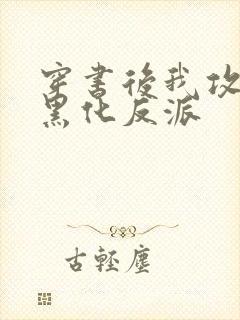 穿書後我攻
黑化反派
古輕塵